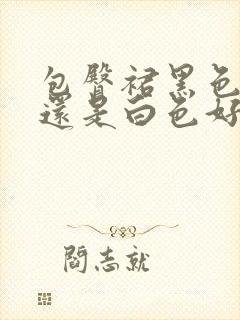 包臀裙黑色
還是白色好
閻志就